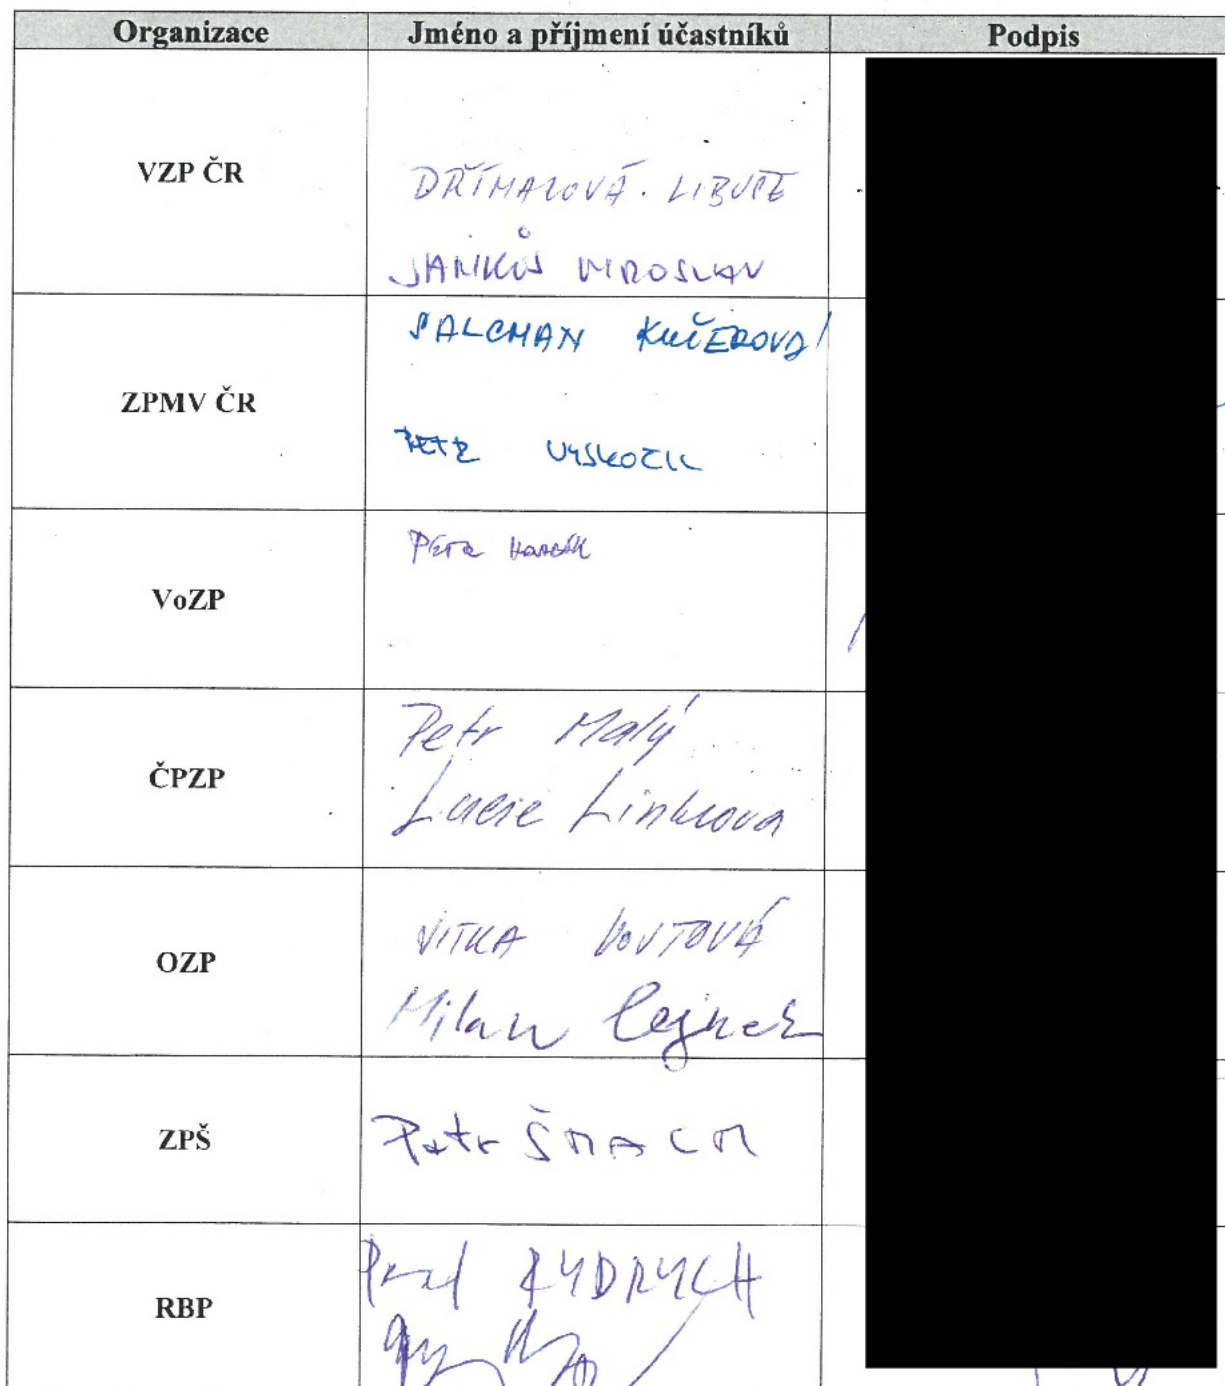 Organizace Jméno a příjmení účastníků Podpis
VZP ČR
DŘÍMALOVÁ. LIBUŠE
JANKŮJ MIROSLAV
ZPMV ČR
SALCMAN KUČEROVÁ
PETR VYSKOČIL
VoZP
PETR
ČPZP
Petr Malý
Lucie Linkova
OZP
VITKA VOJTOVÁ
Milan Cejnek
ZPŠ
Petr ŠMACH
RBP
RYDRYCH